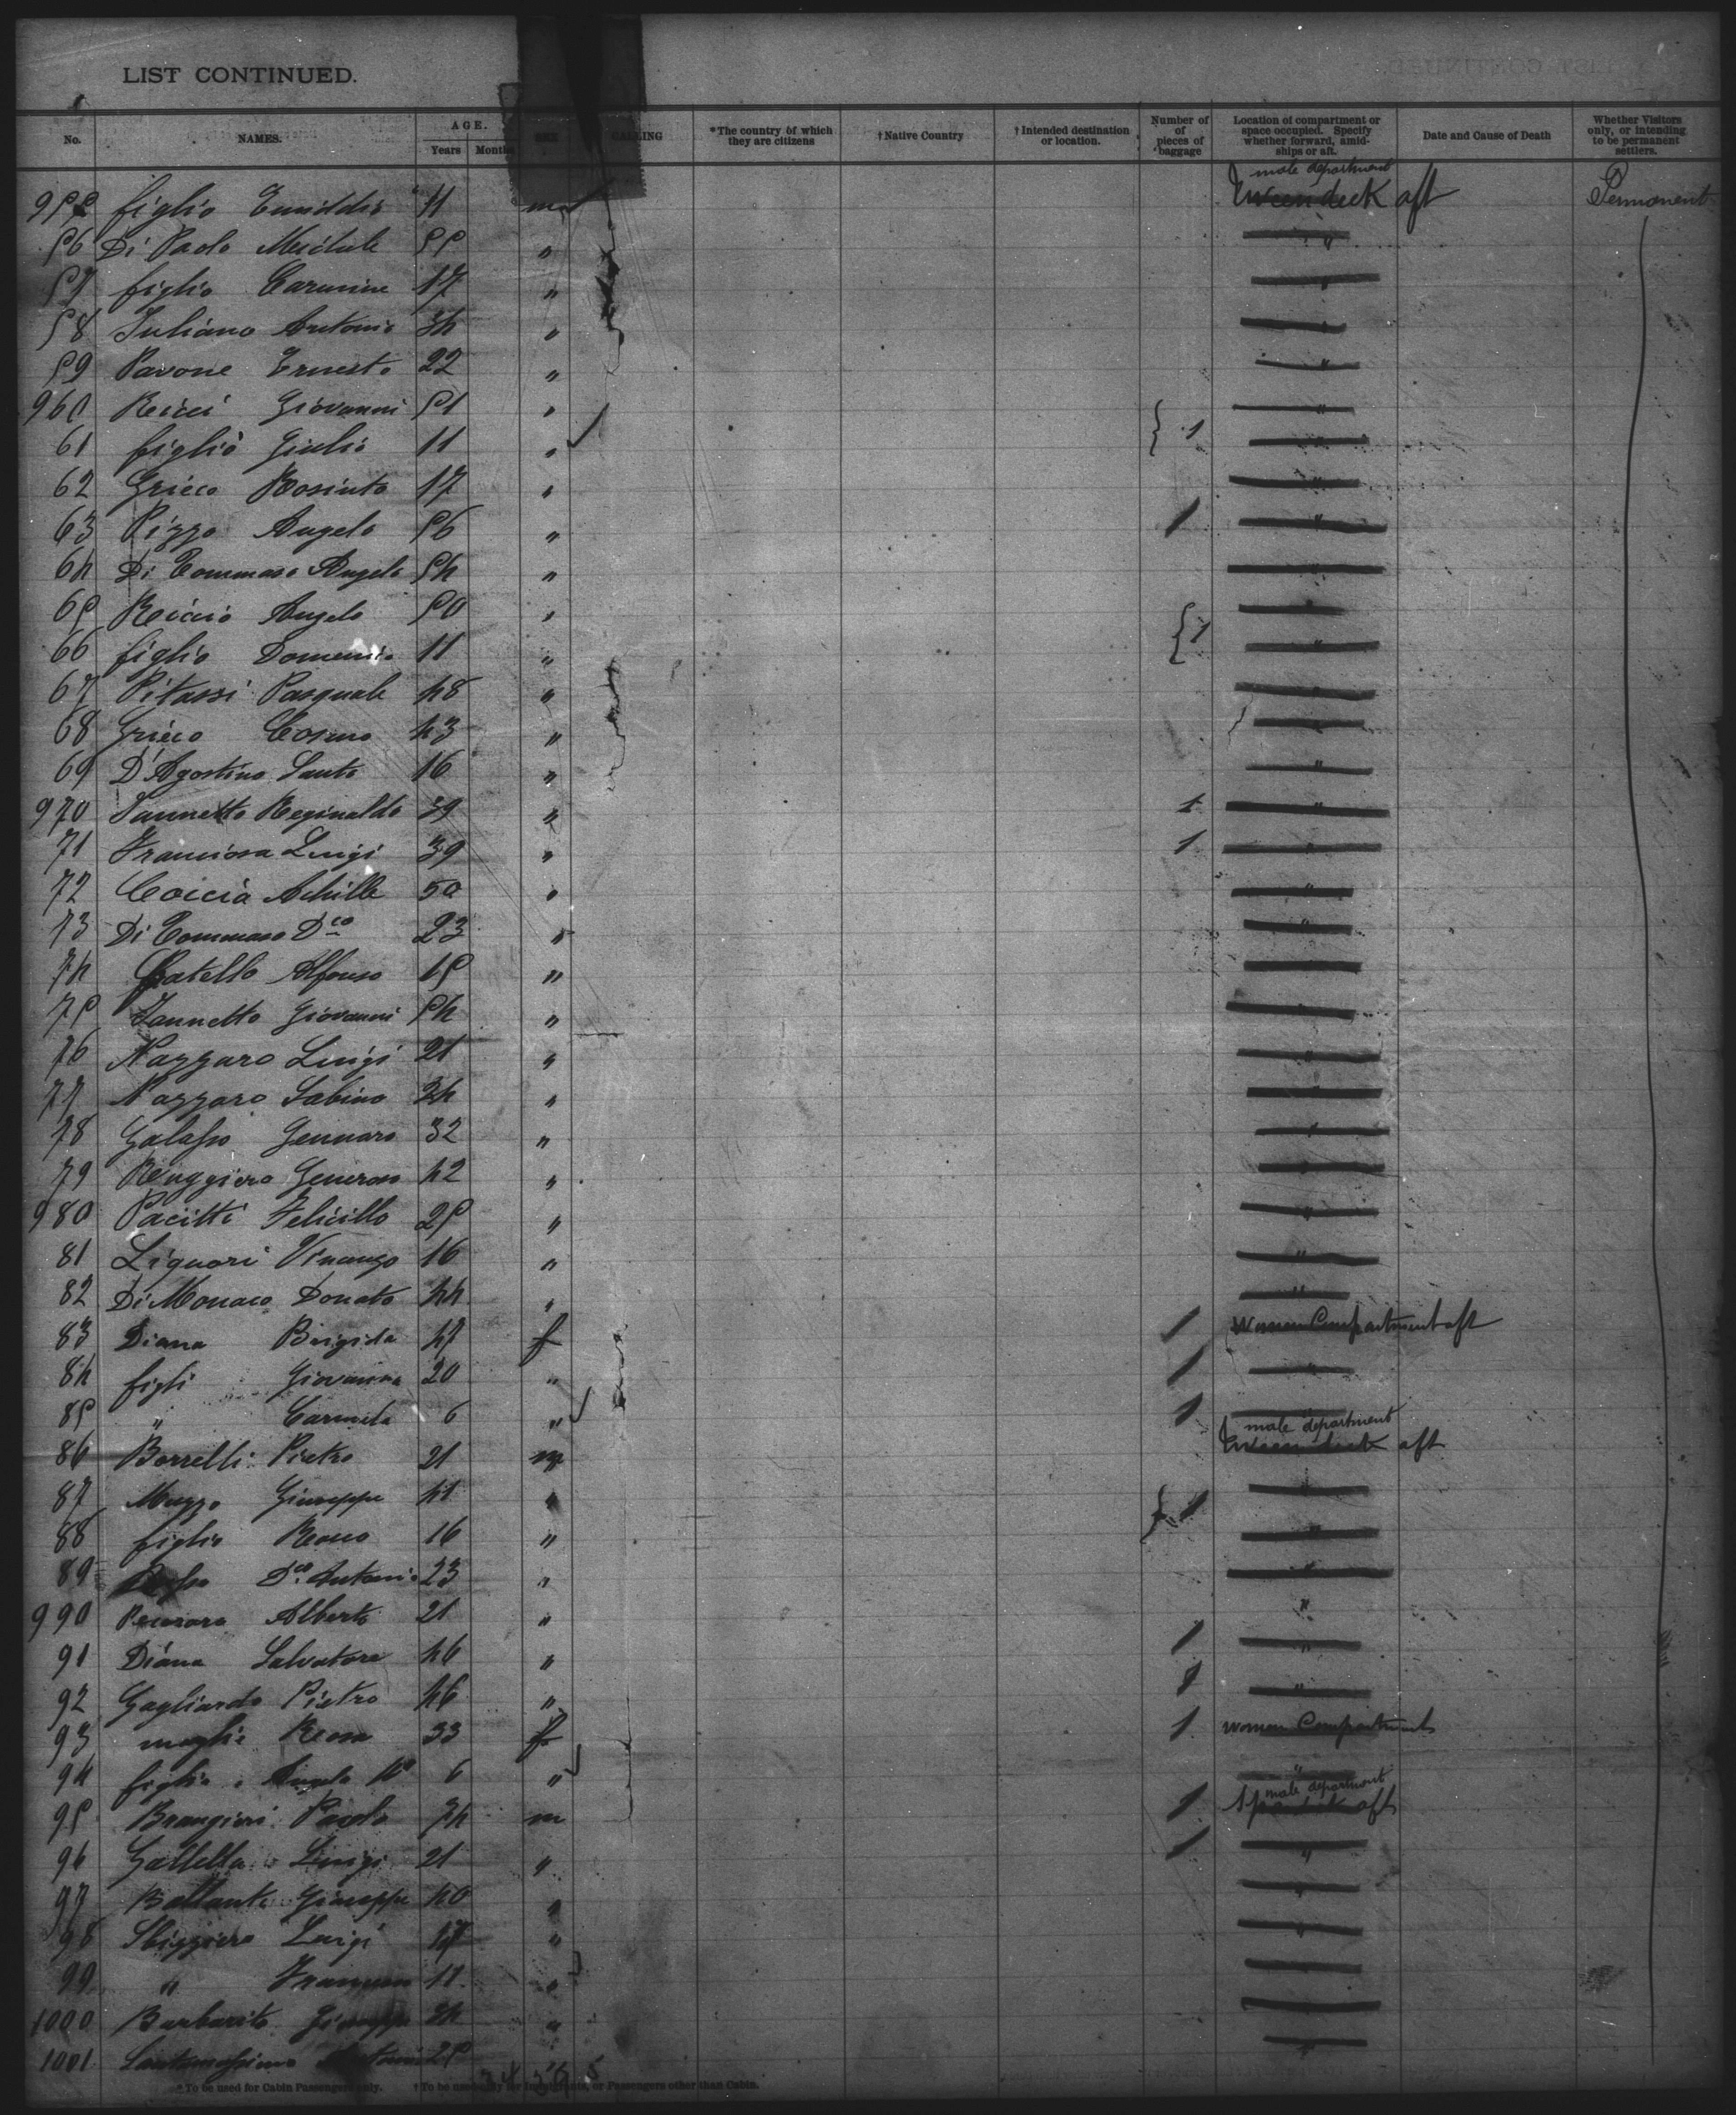 LIST CONTINUED.
No. NAMES. AGE. Years Months SEX CALLING *The country of which they are citizens †Native Country †Intended destination or location. Number of of pieces of baggage Location of compartment or space occupied. Specify whether forward, amidships or aft. Date and Cause of Death Whether Visitors only, or intending to be permanent settlers.
male department
955 figlio 11 m Tween deck aft Permanent
56 Di Paolo Michele 55 " "
57 figlio Carmine 17 " "
58 Iuliano Antonio 34 " "
59 Pavone Ernesto 22 " "
960 Ricci Giovanni 51 " "
61 figlio Giulio 11 " 1 "
62 Grieco Rosinto 17 " "
63 Pizzo Angelo 56 " 1 "
64 Di Tommaso Angelo 54 " "
65 Riccio Angelo 50 " "
66 figlio Domenico 11 " 1 "
67 Pitassi Pasquale 48 " "
68 Grieco Cosmo 43 " "
69 D'Agostino Santo 16 " "
970 Iannetto Reginaldo 39 " 1 "
71 Franciosa Luigi 39 " 1 "
72 Coccia Achille 50 " "
73 Di Tommaso Dco 23 " "
74 fratello Alfonso 15 " "
75 Iannetto Giovanni 54 " "
76 Nazzaro Luigi 21 " "
77 Nazzaro Sabino 24 " "
78 Galasso Gennaro 32 " "
79 Ruggiero Generoso 42 " "
980 Pacitti Felicillo 25 " "
81 Liquori Vincenzo 16 " "
82 Di Monaco Donato 44 " "
83 Diana Brigida 47 f 1 Women Compartment aft
84 figli Giovanna 20 " 1 "
85 " Carmela 6 " 1
male department
86 Borrelli Pietro 21 m Tween deck aft
87 Muzzo Giuseppe 41 " 1 "
88 figlio Rocco 16 " "
89 Dco Antonio 23 " "
990 Pecoraro Alberto 21 " "
91 Diana Salvatore 46 " 1 "
92 Gagliardo Pietro 46 " 1 "
93 moglie Rosa 33 f 1 women Compartment
94 figlia Angela Ma 6 " "
male department
95 Brangieri Paolo 34 m 1 aft
96 Gallella Luigi 21 " 1 "
97 Ballante Giuseppe 40 " "
98 Luigi 17 " "
99 " Francesco 11 " "
1000 Barbarito Giuseppe 34 " "
1001 Santomassimo Antonio 25 "
* To be used for Cabin Passengers only. † To be used only for Immigrants, or Passengers other than Cabin.